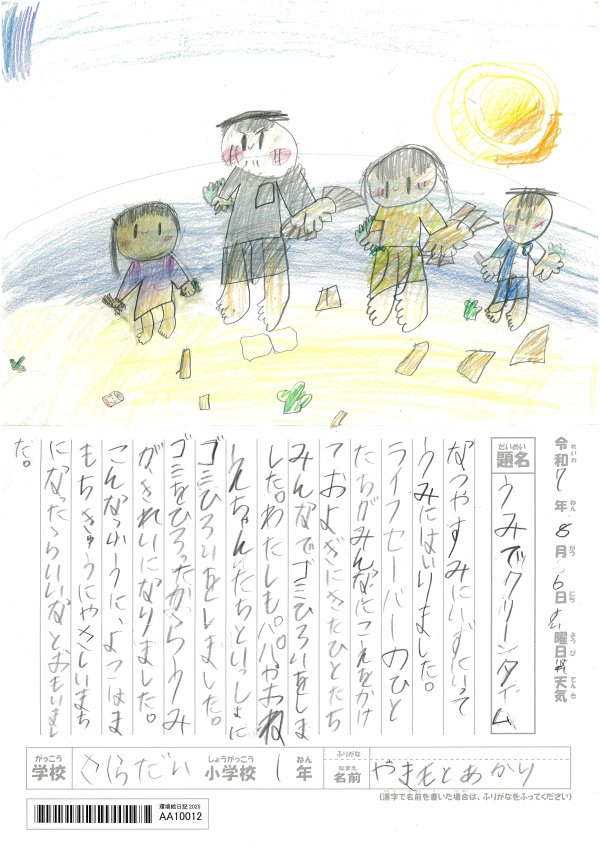 れいわ ねん がつ にち ようび てんき
令和7年8月6日水曜日晴天気
だいめい
題名 うみでクリーンタイム
なつやすみにいずにいって
うみにはいりました。
ライフセーバーのひと
たちがみんなにこえをかけ
ておよぎにきたひとたち
みんなでゴミひろいをしま
した。わたしも。パパやおね
えちゃんたちといっしょに
ゴミひろいをしました。
ゴミをひろったからうみ
がきれいになりました。
こんなふうに、よこはま
もちきゅうにやさしいまち
になったらいいなとおもいまし
た。
がっこう しょうがっこう ねん ふりがな
学校 さくらだい 小学校 1年 なまえ 名前 やまもとあかり
(漢字で名前を書いた場合は、ふりがなをふってください)
環境絵日記 2025
AA10012